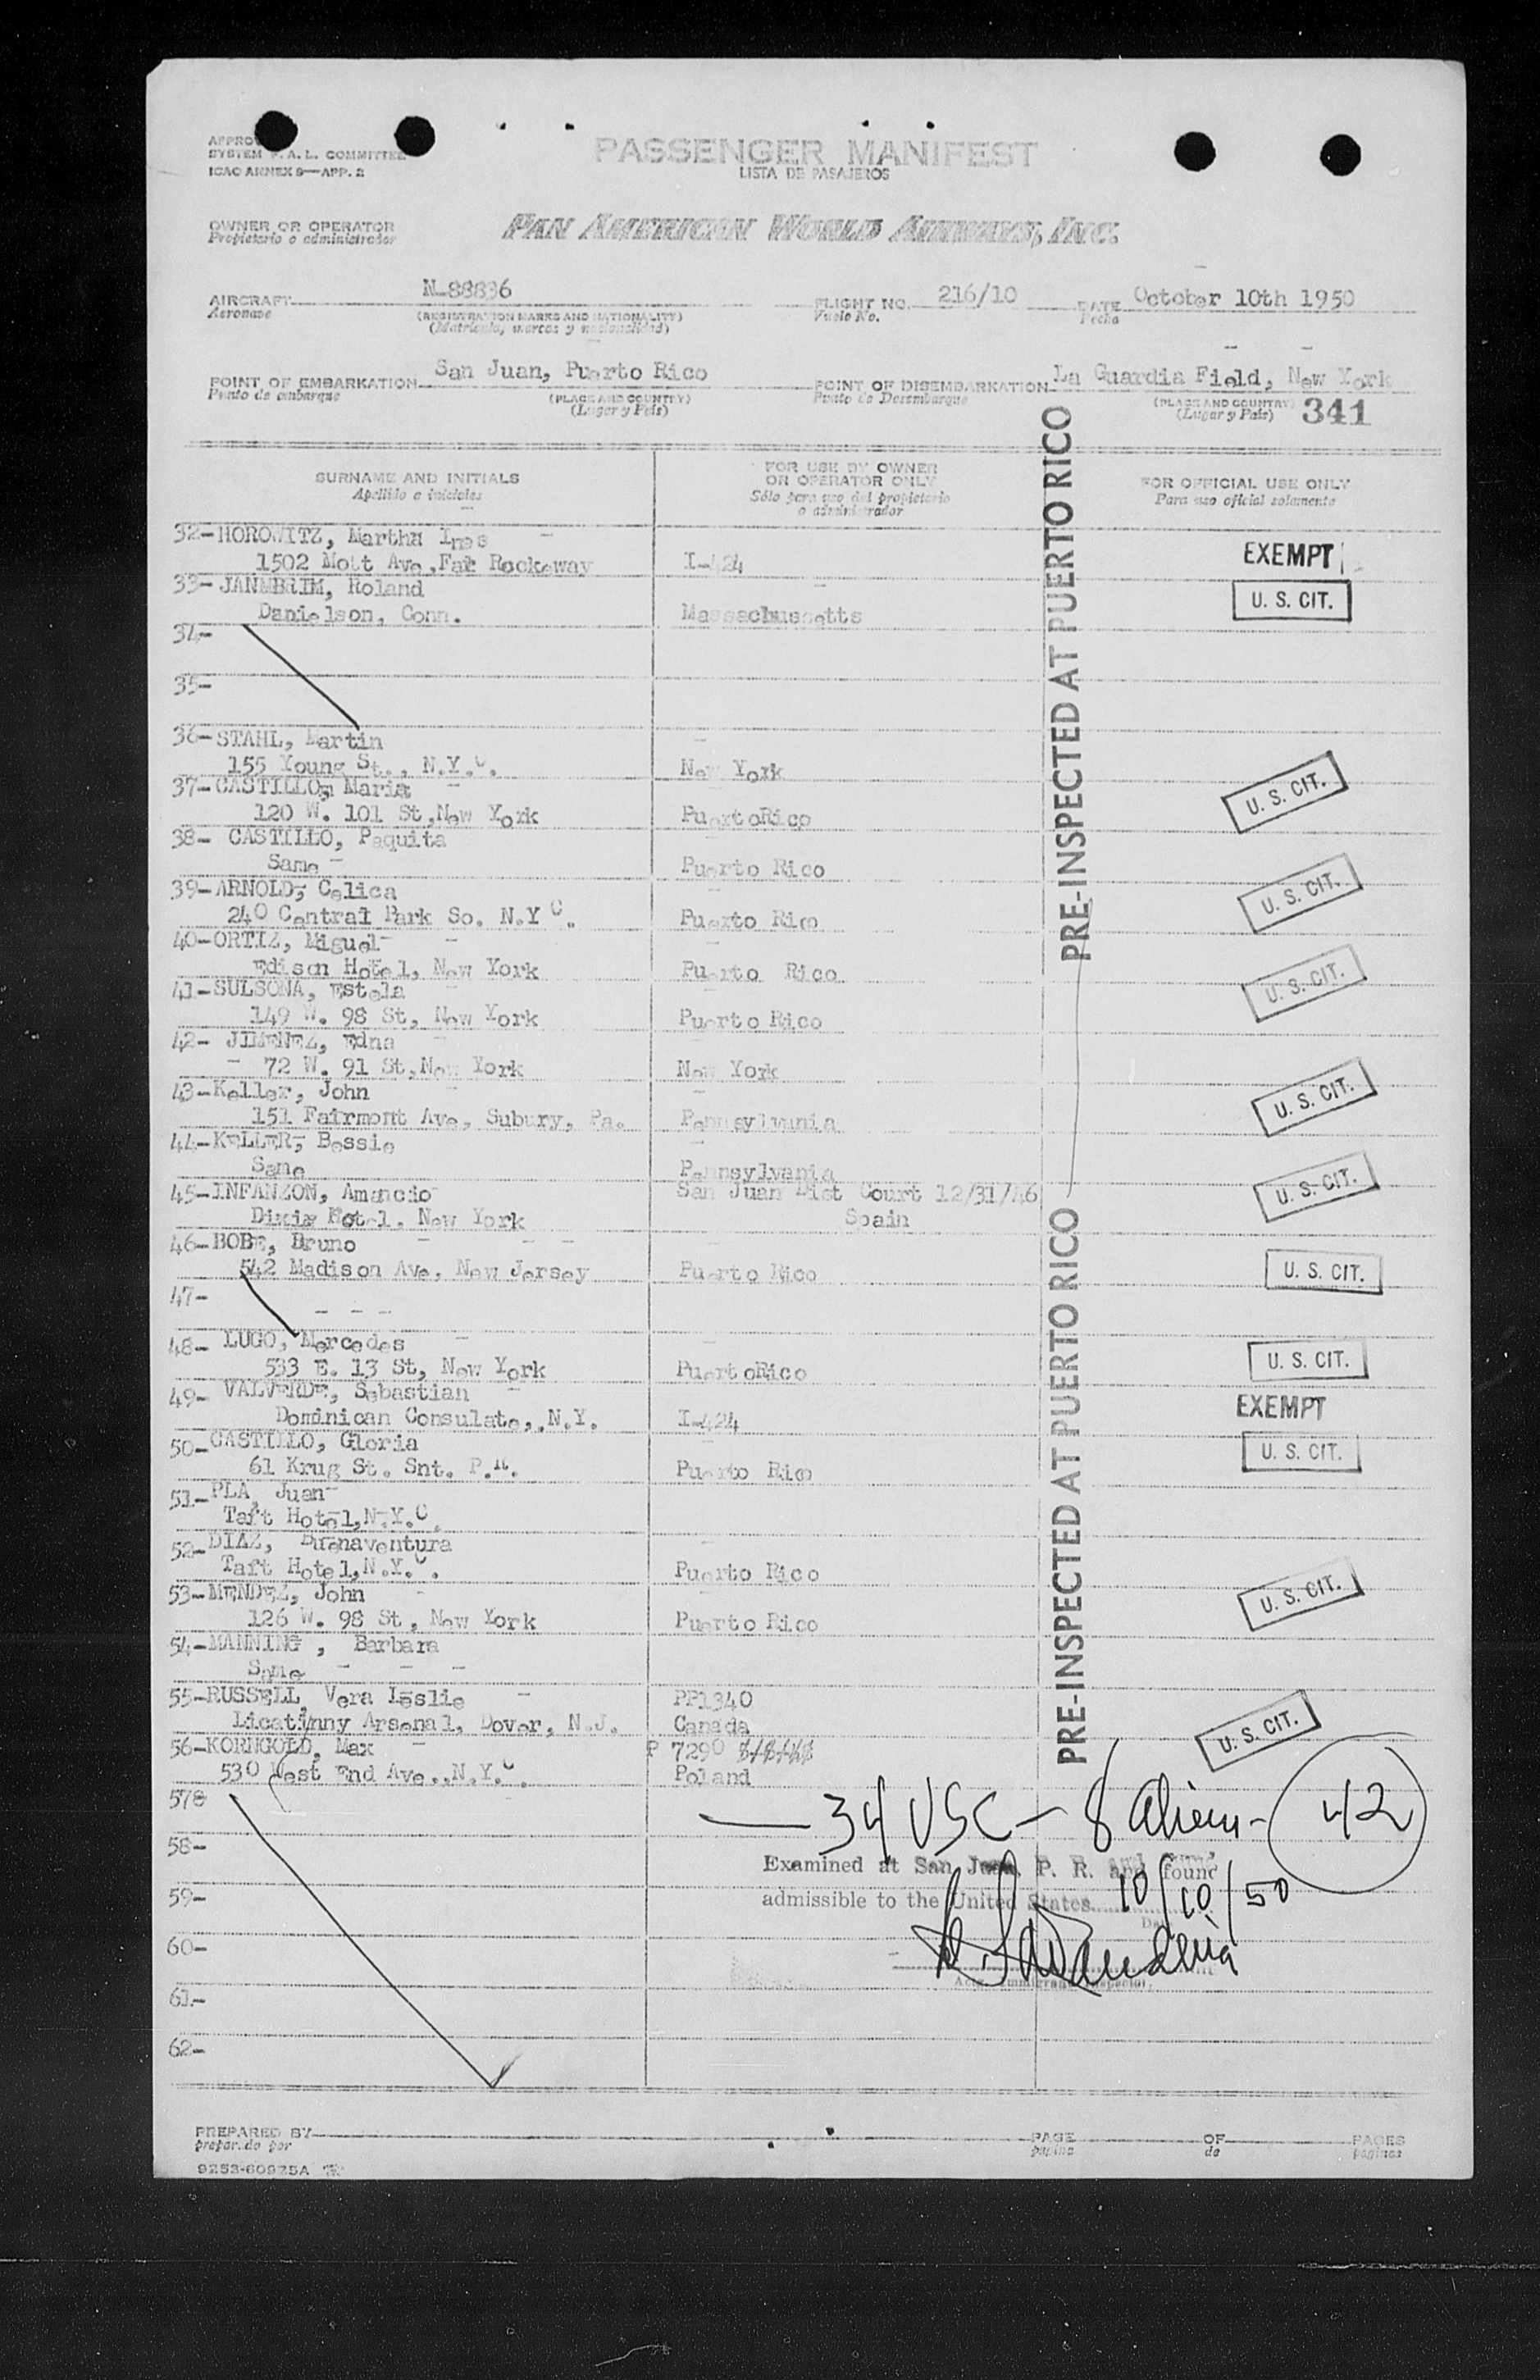 SYSTEM F. A. L. COMMITTEE
ICAO ANNEX 9—APP. 2
PASSENGER MANIFEST
LISTA DE PASAJEROS
OWNER OR OPERATOR
Propietario o administrador
PAN AMERICAN WORLD AIRWAYS, INC.
AIRCRAFT N-88836 FLIGHT NO. 216/10 DATE October 10th 1950
Aeronave (REGISTRATION MARKS AND NATIONALITY) Vuelo No. Fecha
(Matrícula, marcas y nacionalidad)
POINT OF EMBARKATION San Juan, Puerto Rico POINT OF DISEMBARKATION La Guardia Field, New York
Punto de embarque (PLACE AND COUNTRY) Punto de Desembarque (PLACE AND COUNTRY)
(Lugar y País) (Lugar y País) 341
SURNAME AND INITIALS FOR USE BY OWNER OR OPERATOR ONLY FOR OFFICIAL USE ONLY
Apellido e iniciales Sólo para uso del propietario o administrador Para uso oficial solamente
PRE-INSPECTED AT PUERTO RICO
32-HOROWITZ, Martha Ines
1502 Mott Ave,Far Rockaway I-424 EXEMPT
33- Roland U. S. CIT.
Danielson, Conn. Massachussetts
34-
35-
36-STAHL, Martin
155 Young St., N.Y.C. New York
37-CASTILLO, Maria U. S. CIT.
120 W. 101 St,New York PuertoRico
38- CASTILLO, Paquita
Same Puerto Rico
39-ARNOLD, Celica U. S. CIT.
240 Central Park So. N.Y C. Puerto Rico
40-ORTIZ, Miguel
Edison Hotel, New York Puerto Rico
41-SULSONA, Estela U. S. CIT.
149 W. 98 St, New York Puerto Rico
42- JIMENEZ, Edna
72 W. 91 St,New York New York
43-Keller, John U. S. CIT.
151 Fairmont Ave, Subury, Pa. Pennsylvania
44-KELLER, Bessie
Same Pennsylvania
45-INFANZON, Amancio San Juan Dist Court 12/31/46 U. S. CIT.
Dixie Hotel, New York Spain
46-BOBE, Bruno
542 Madison Ave, New Jersey Puerto Rico U. S. CIT.
47-
48- LUGO, Mercedes
533 E. 13 St, New York PuertoRico U. S. CIT.
49- VALVERDE, Sebastian
Dominican Consulate,,N.Y. I-424 EXEMPT
50-CASTILLO, Gloria U. S. CIT.
61 Krug St. Snt. P.R. Puerto Rico
51-PLA, Juan
Taft Hotel,N.Y.C.
52-DIAZ, Buenaventura
Taft Hotel,N.Y.C. Puerto Rico
53-MENDEZ, John U. S. CIT.
126 W. 98 St, New York Puerto Rico
54-MANNING , Barbara
Same
55-RUSSELL Vera Leslie PP1340
Licatinny Arsenal, Dover, N.J. Canada U. S. CIT.
56-KORNGOLD, Max P 7290
530 West End Ave.,N.Y.C. Poland
PRE-INSPECTED AT PUERTO RICO
57-
34 USC - 8 Aliens - 42
58-
Examined at San Juan, P. R. and found
59-
admissible to the United States 10/10/50
60-
61-
62-
PREPARED BY PAGE OF PAGES
preparado por página de páginas
9253-60925A